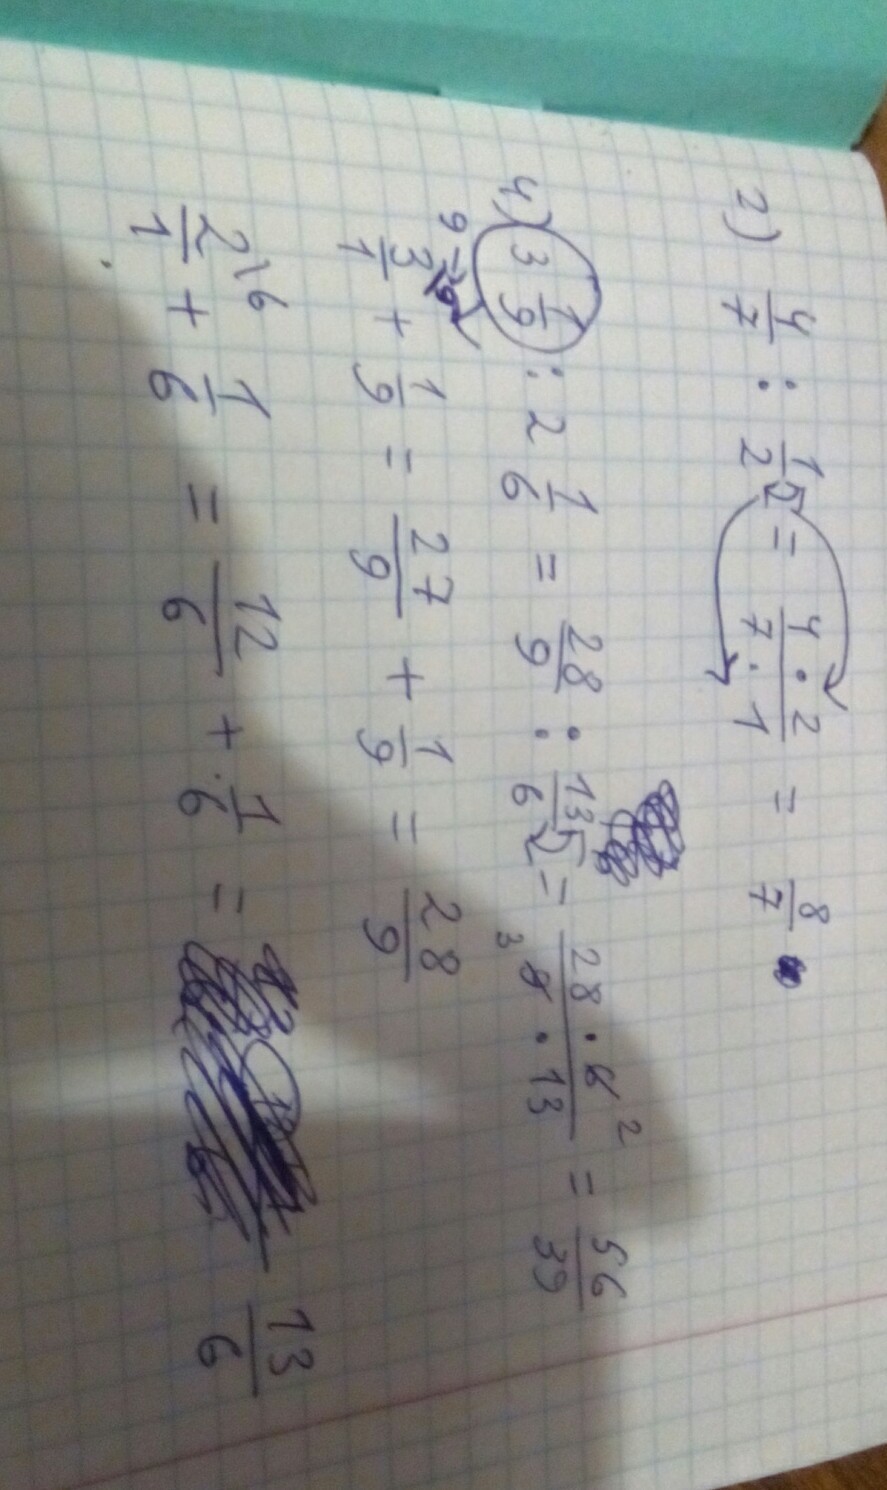 2) 4/7 : 1/2 = 4·2/7·1 = 8/7
4) 3 1/9 : 2 1/6 = 28/9 : 13/6 = 28·6 2/3 9·13 = 56/39
9 3/1 + 1/9 = 27/9 + 1/9 = 28/9
2\6/1 + 1/6 = 12/6 + 1/6 = 13/6